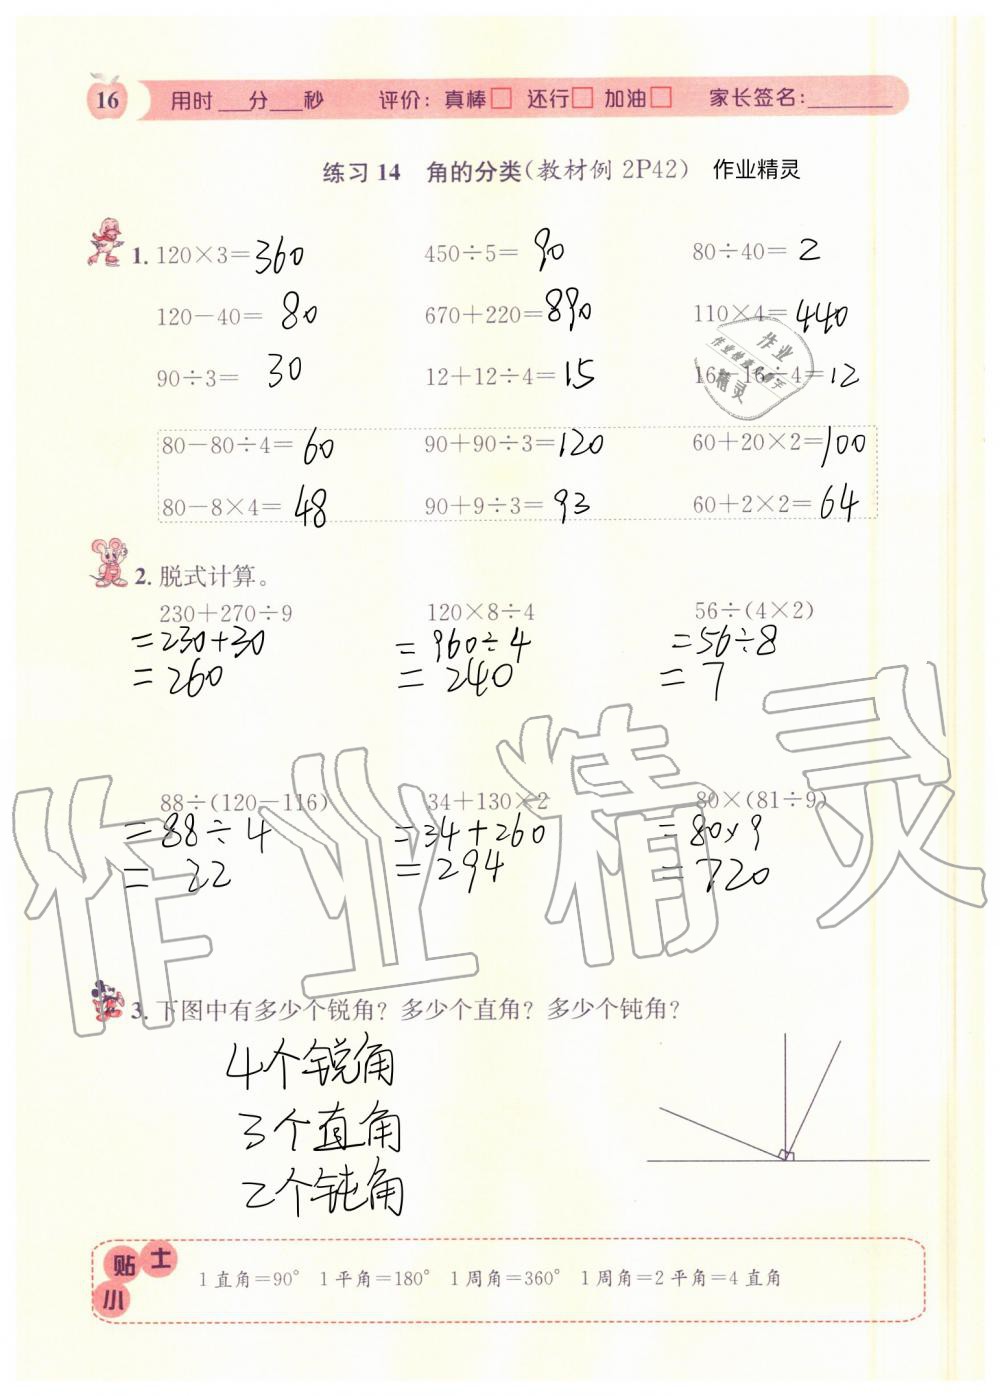 16 用时___分___秒 评价：真棒□ 还行□ 加油□ 家长签名：______
练习 14 角的分类(教材例 2P42) 作业精灵
1. 120×3=360 450÷5=90 80÷40=2
120−40=80 670+220=890 110×4=440
90÷3=30 12+12÷4=15 16 16÷4=12
80−80÷4=60 90+90÷3=120 60+20×2=100
80−8×4=48 90+9÷3=93 60+2×2=64
2. 脱式计算。
230+270÷9 120×8÷4 56÷(4×2)
=230+30 =960÷4 =56÷8
=260 =240 =7
88÷(120−116) 34+130×2 80×(81÷9)
=88÷4 =34+260 =80×9
=22 =294 =720
3. 下图中有多少个锐角？多少个直角？多少个钝角？
4个锐角
3个直角
2个钝角
小贴士
1 直角=90° 1 平角=180° 1 周角=360° 1 周角=2 平角=4 直角
作业精灵
作业
精灵